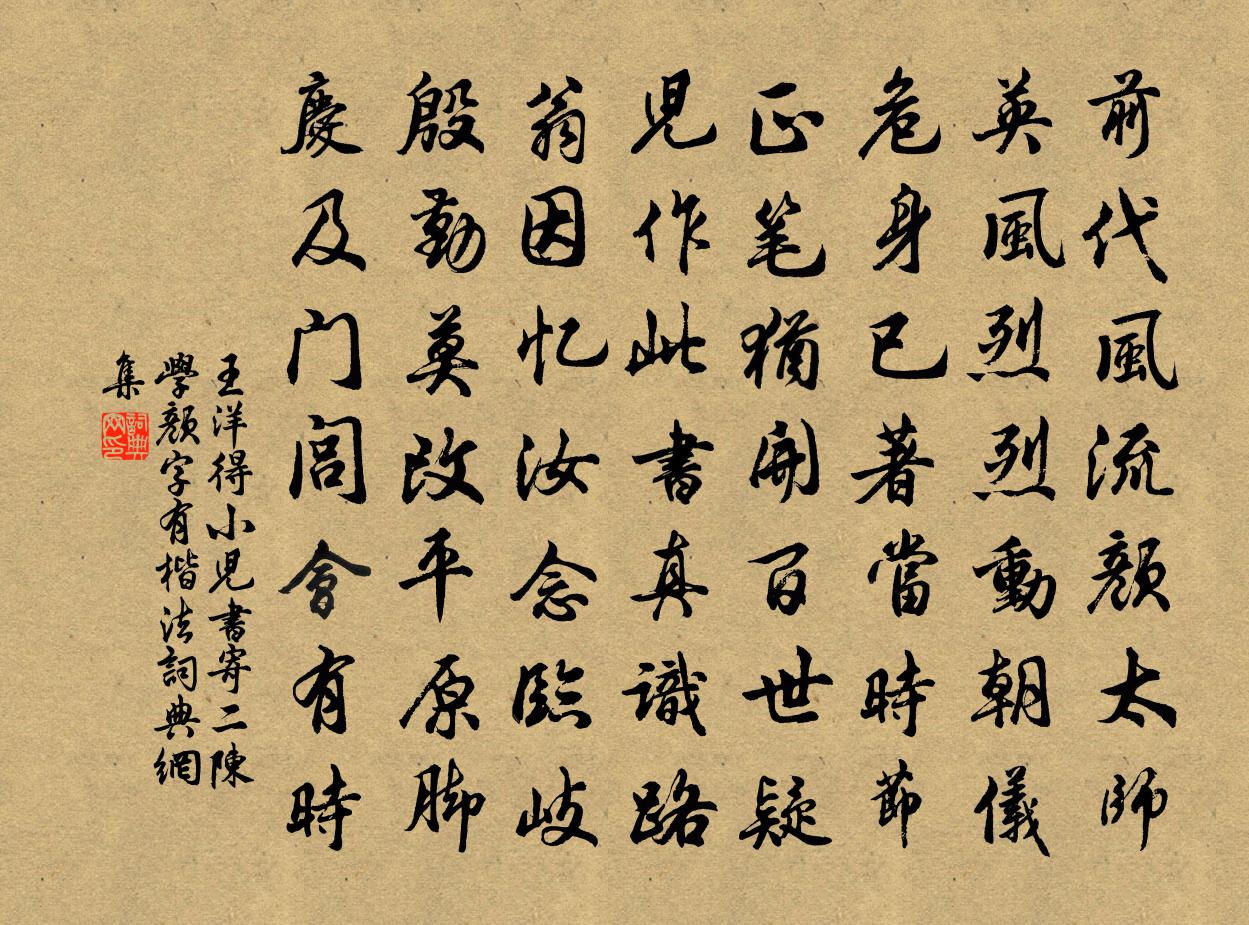 前代風流顏太師
英風烈烈動朝儀
危身已著當時節
正笔猶開百世疑
児作此書真識路
翁因忆汝念臨岐
殷勤莫改平原脚
慶及门闾會有時
王洋得小児書寄二陳
學顏字有楷法詞典網
集
詞典
网印